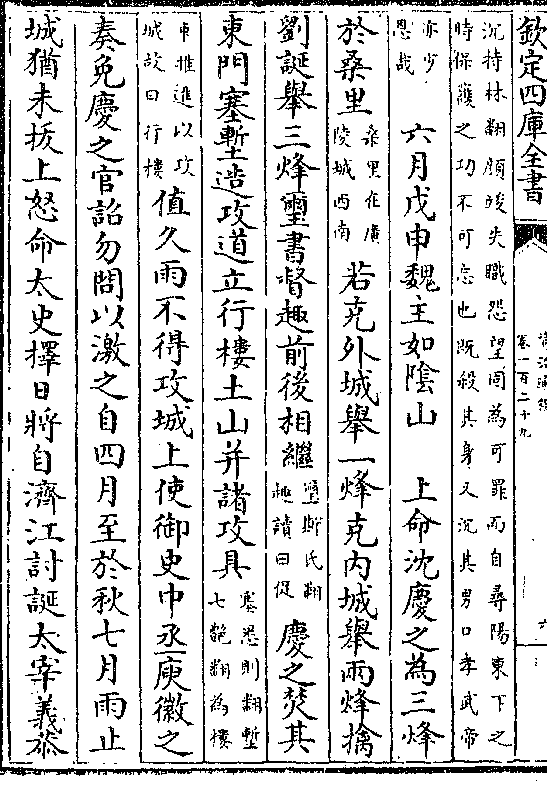 欽定四庫全書
卷一百二十九
六
沉持林翻顔竣失職怨望固為可罪而自尋陽東下之
時保護之功不可忘也既殺其身又沉其男口孝武帝
亦少
恩哉
六月戊申魏主如隂山　上命沈慶之為三烽
於桑里
桑里在廣
陵城西南
若克外城舉一烽克内城舉兩烽擒
劉誕舉三烽璽書督趣前後相繼
璽斯氏翻
趣讀曰促
慶之焚其
東門塞塹造攻道立行樓土山并諸攻具
塞悉則翻塹
七艷翻為樓
車推進以攻
城故曰行樓
值久雨不得攻城上使御史中丞庾徽之
奏免慶之官詔勿問以激之自四月至於秋七月雨止
城猶未拔上怒命太史擇日將自濟江討誕太宰義恭